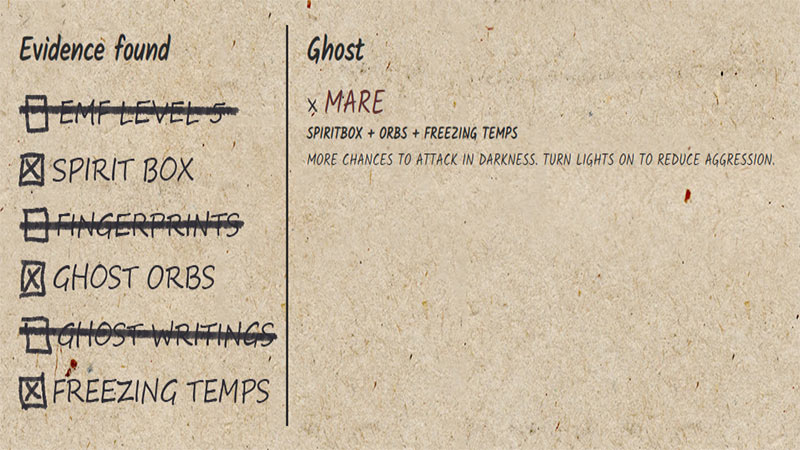 Evidence found
EMF LEVEL 5
SPIRIT BOX
FINGERPRINTS
GHOST ORBS
GHOST WRITINGS
FREEZING TEMPS
Ghost
x MARE
SPIRITBOX + ORBS + FREEZING TEMPS
MORE CHANCES TO ATTACK IN DARKNESS. TURN LIGHTS ON TO REDUCE AGGRESSION.